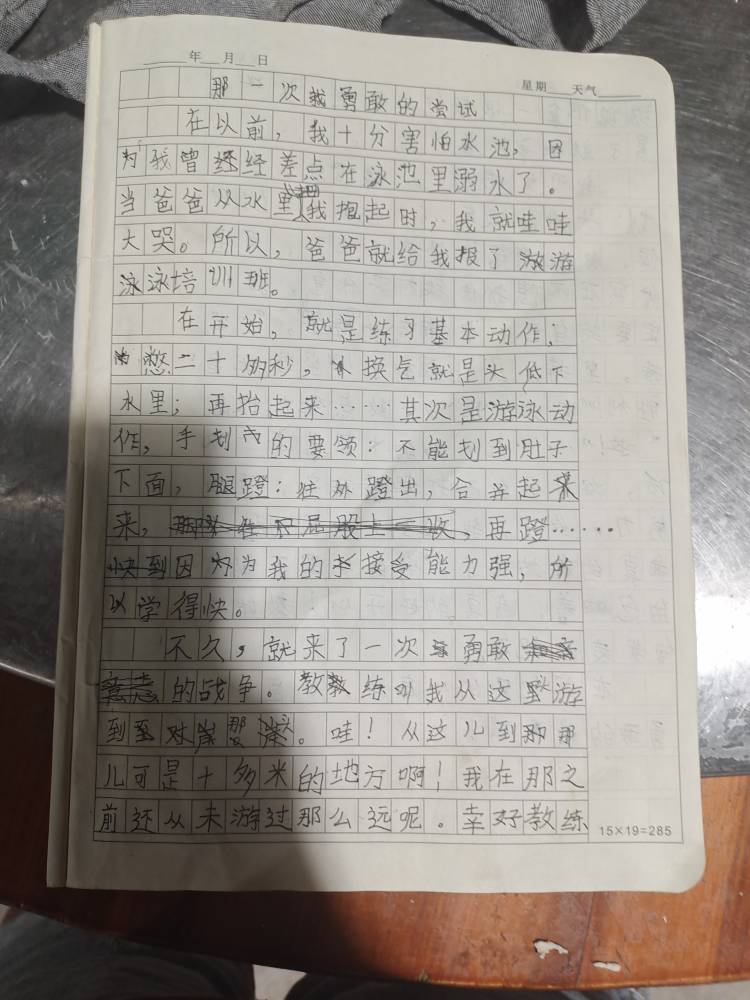 年 月 日
星期 天气
那一次我勇敢的尝试
在以前，我十分害怕水池，因
为我曾经差点在泳池里溺水了。
当爸爸从水里把我抱起时，我就哇哇
大哭。所以，爸爸就给我报了游
泳泳培训班。
在开始，就是练习基本动作：
憋二十多秒，换气就是头低下
水里；再抬起来……其次是游泳动
作，手划的要领：不能划到肚子
下面，腿蹬：往外蹬出，合并起来
来，再蹬……
因为我的接受能力强，所
以学得快。
不久，就来了一次勇敢
的战争。教练叫我从这里游
到对岸那。哇！从这儿到那
儿可是十多米的地方啊！我在那之
前还从未游过那么远呢。幸好教练
15×19=285